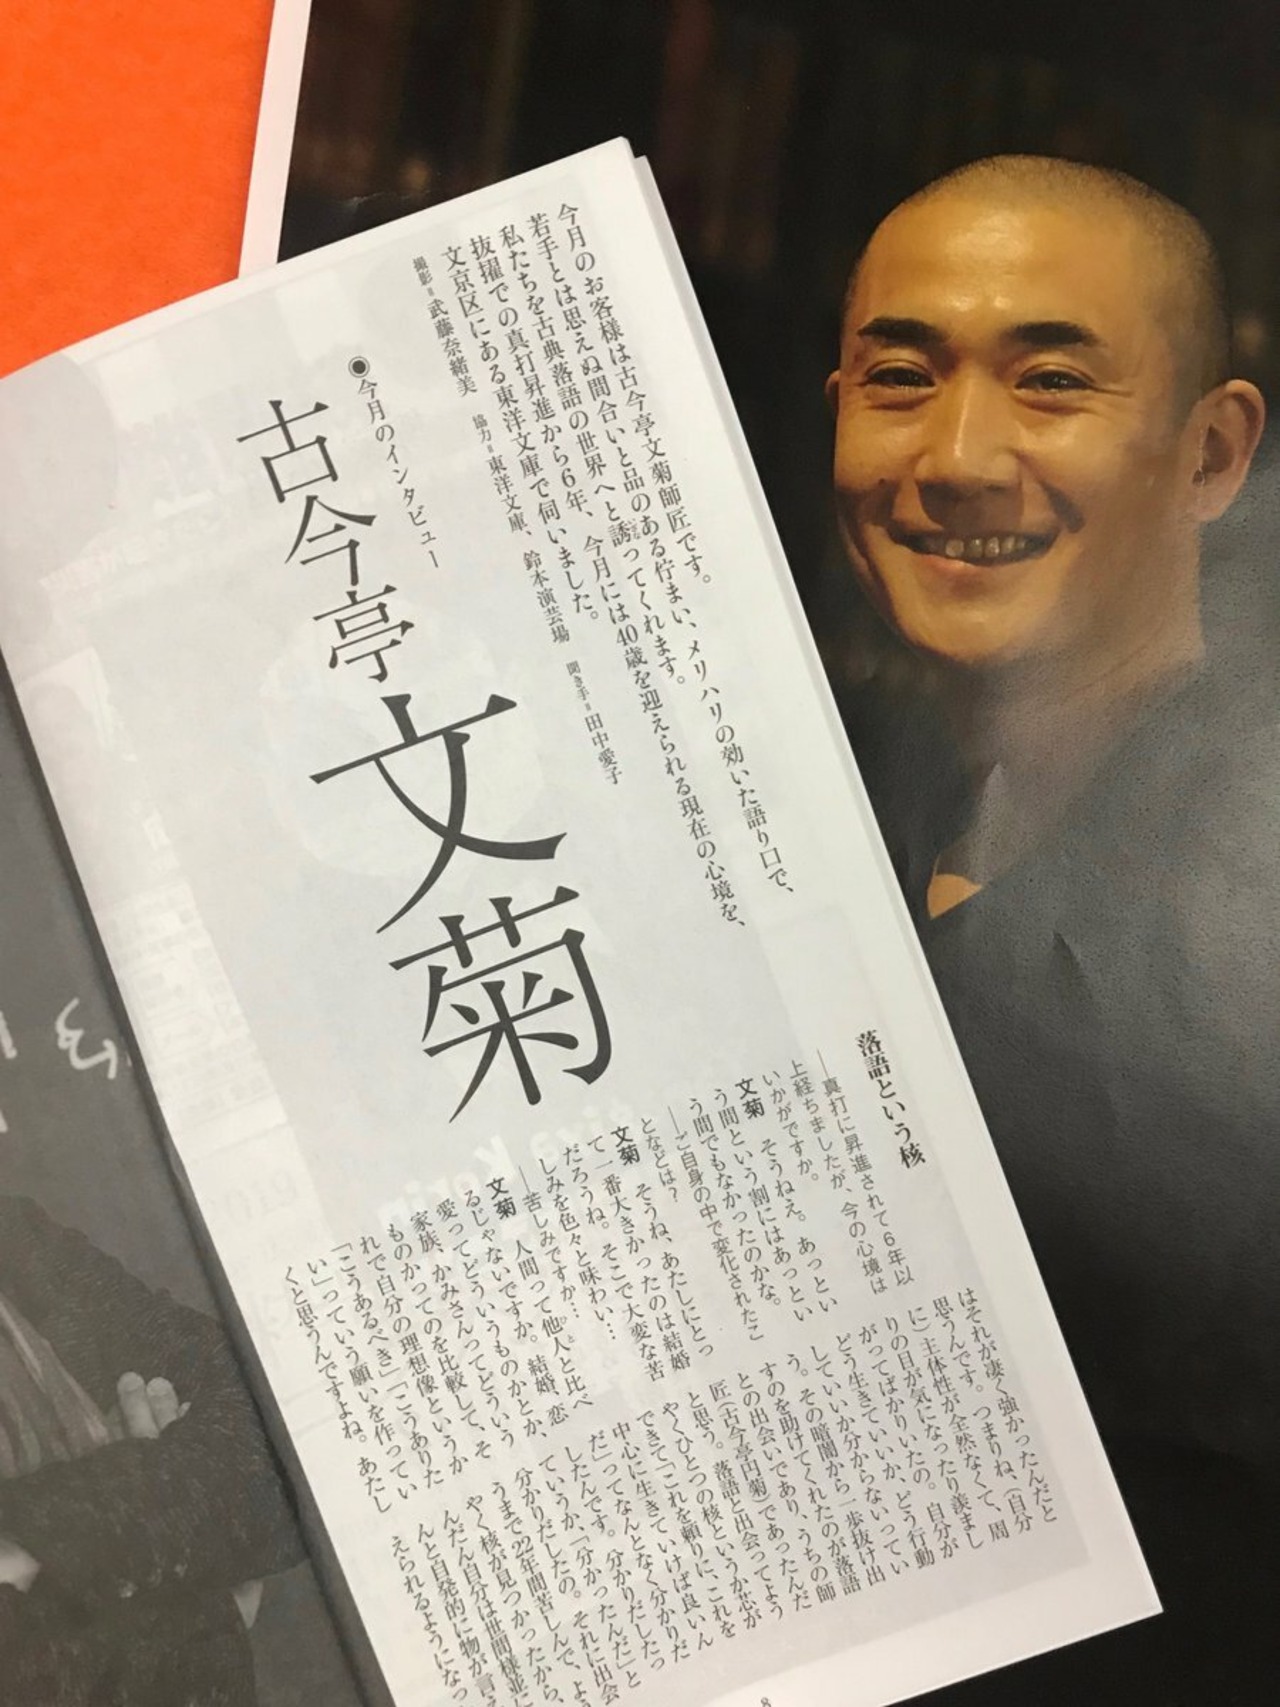 今月のお客様は古今亭文菊師匠です。
若手とは思えぬ間合いと品のある佇まい、メリハリの効いた語り口で、
私たちを古典落語の世界へと誘ってくれます。
抜擢での真打昇進から6年、今月には40歳を迎えられる現在の心境を、
文京区にある東洋文庫で伺いました。
撮影=武藤奈緒美 協力=東洋文庫、鈴本演芸場 聞き手=田中愛子
◉今月のインタビュー
古今亭文菊
落語という核
──真打に昇進されて6年以
上経ちましたが、今の心境は
いかがですか。
文菊 そうねえ。あっとい
う間という割にはあっとい
う間でもなかったのかな。
──ご自身の中で変化されたこ
となどは?
文菊 そうね、あたしにとっ
て一番大きかったのは結婚
だろうね。そこで大変な苦
しみを色々と味わい…
──苦しみですか…。
文菊 人間って他人と比べ
るじゃないですか。結婚、恋
愛ってどういうものかとか、
家族、かみさんってどういう
ものかってのを比較して、そ
れで自分の理想像というか
「こうあるべき」「こうありた
い」っていう願いを作ってい
くと思うんですよね。あたし
はそれが凄く強かったんだと
思うんです。つまりね、(自分
に)主体性が全然なくて、周
りの目が気になったり羨まし
がってばかりいたの。自分が
どう生きていいか、どう行動
していいか分からないってい
う。その暗闇から一歩抜け出
すのを助けてくれたのが落語
との出会いであり、うちの師
匠(古今亭円菊)であったんだ
と思う。落語と出会ってよう
やくひとつの核というか芯が
できて「これを頼りに、これを
中心に生きていけば良いん
だ」ってなんとなく分かりだ
したんです。分かりだしたっ
ていうか、「分かったんだ」と
分かりだしたの。それに出会
うまで22年間苦しんで、よう
やく核が見つかったから、
んだん自分は世間様並に
んと自発的に物が言え
えられるようになっ
8